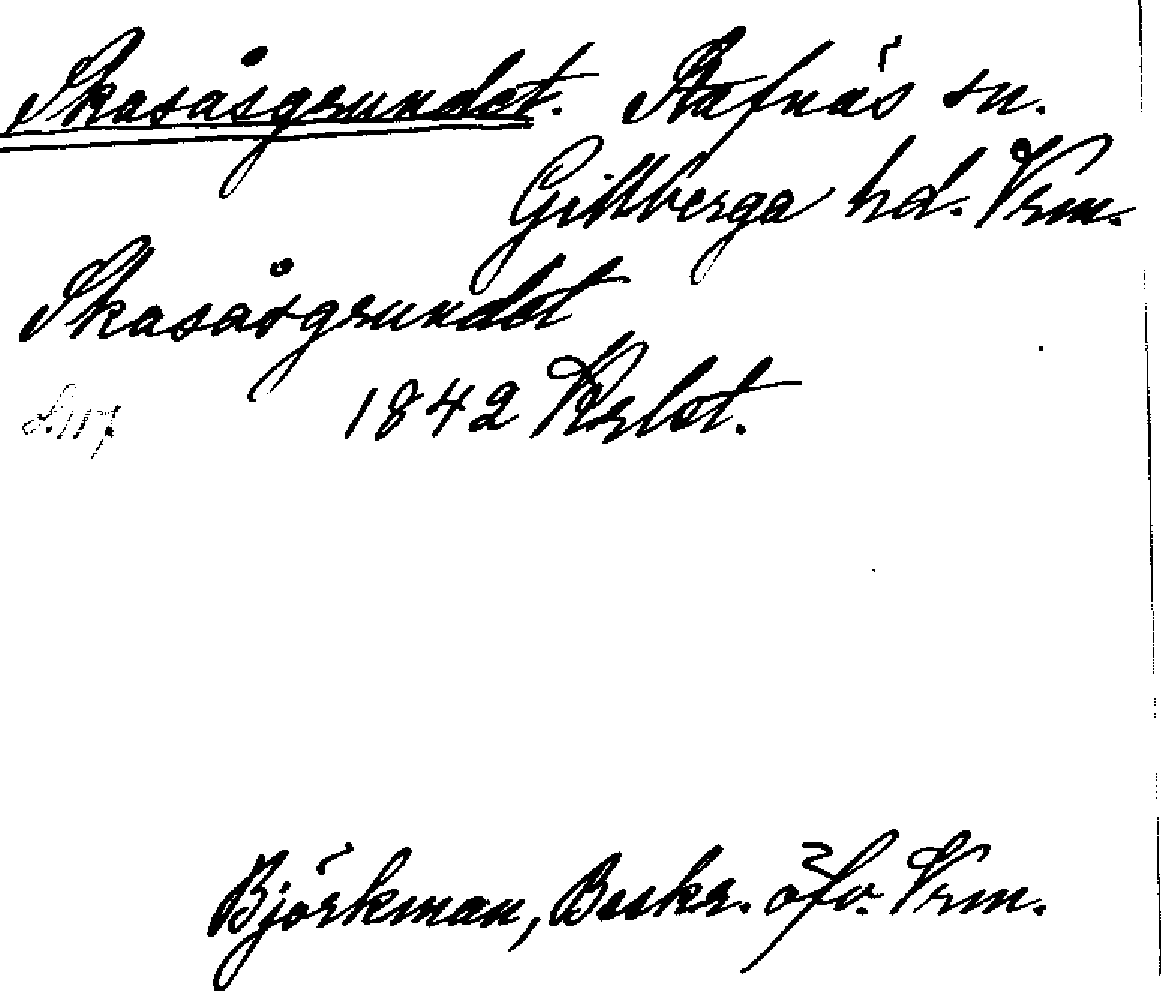 Skasåsgrundet. Stafnäs sn.
Gillberga hd. Vrm.
Skasåsgrundet
1842
Björkman, Beskr. öfv. Vrm.